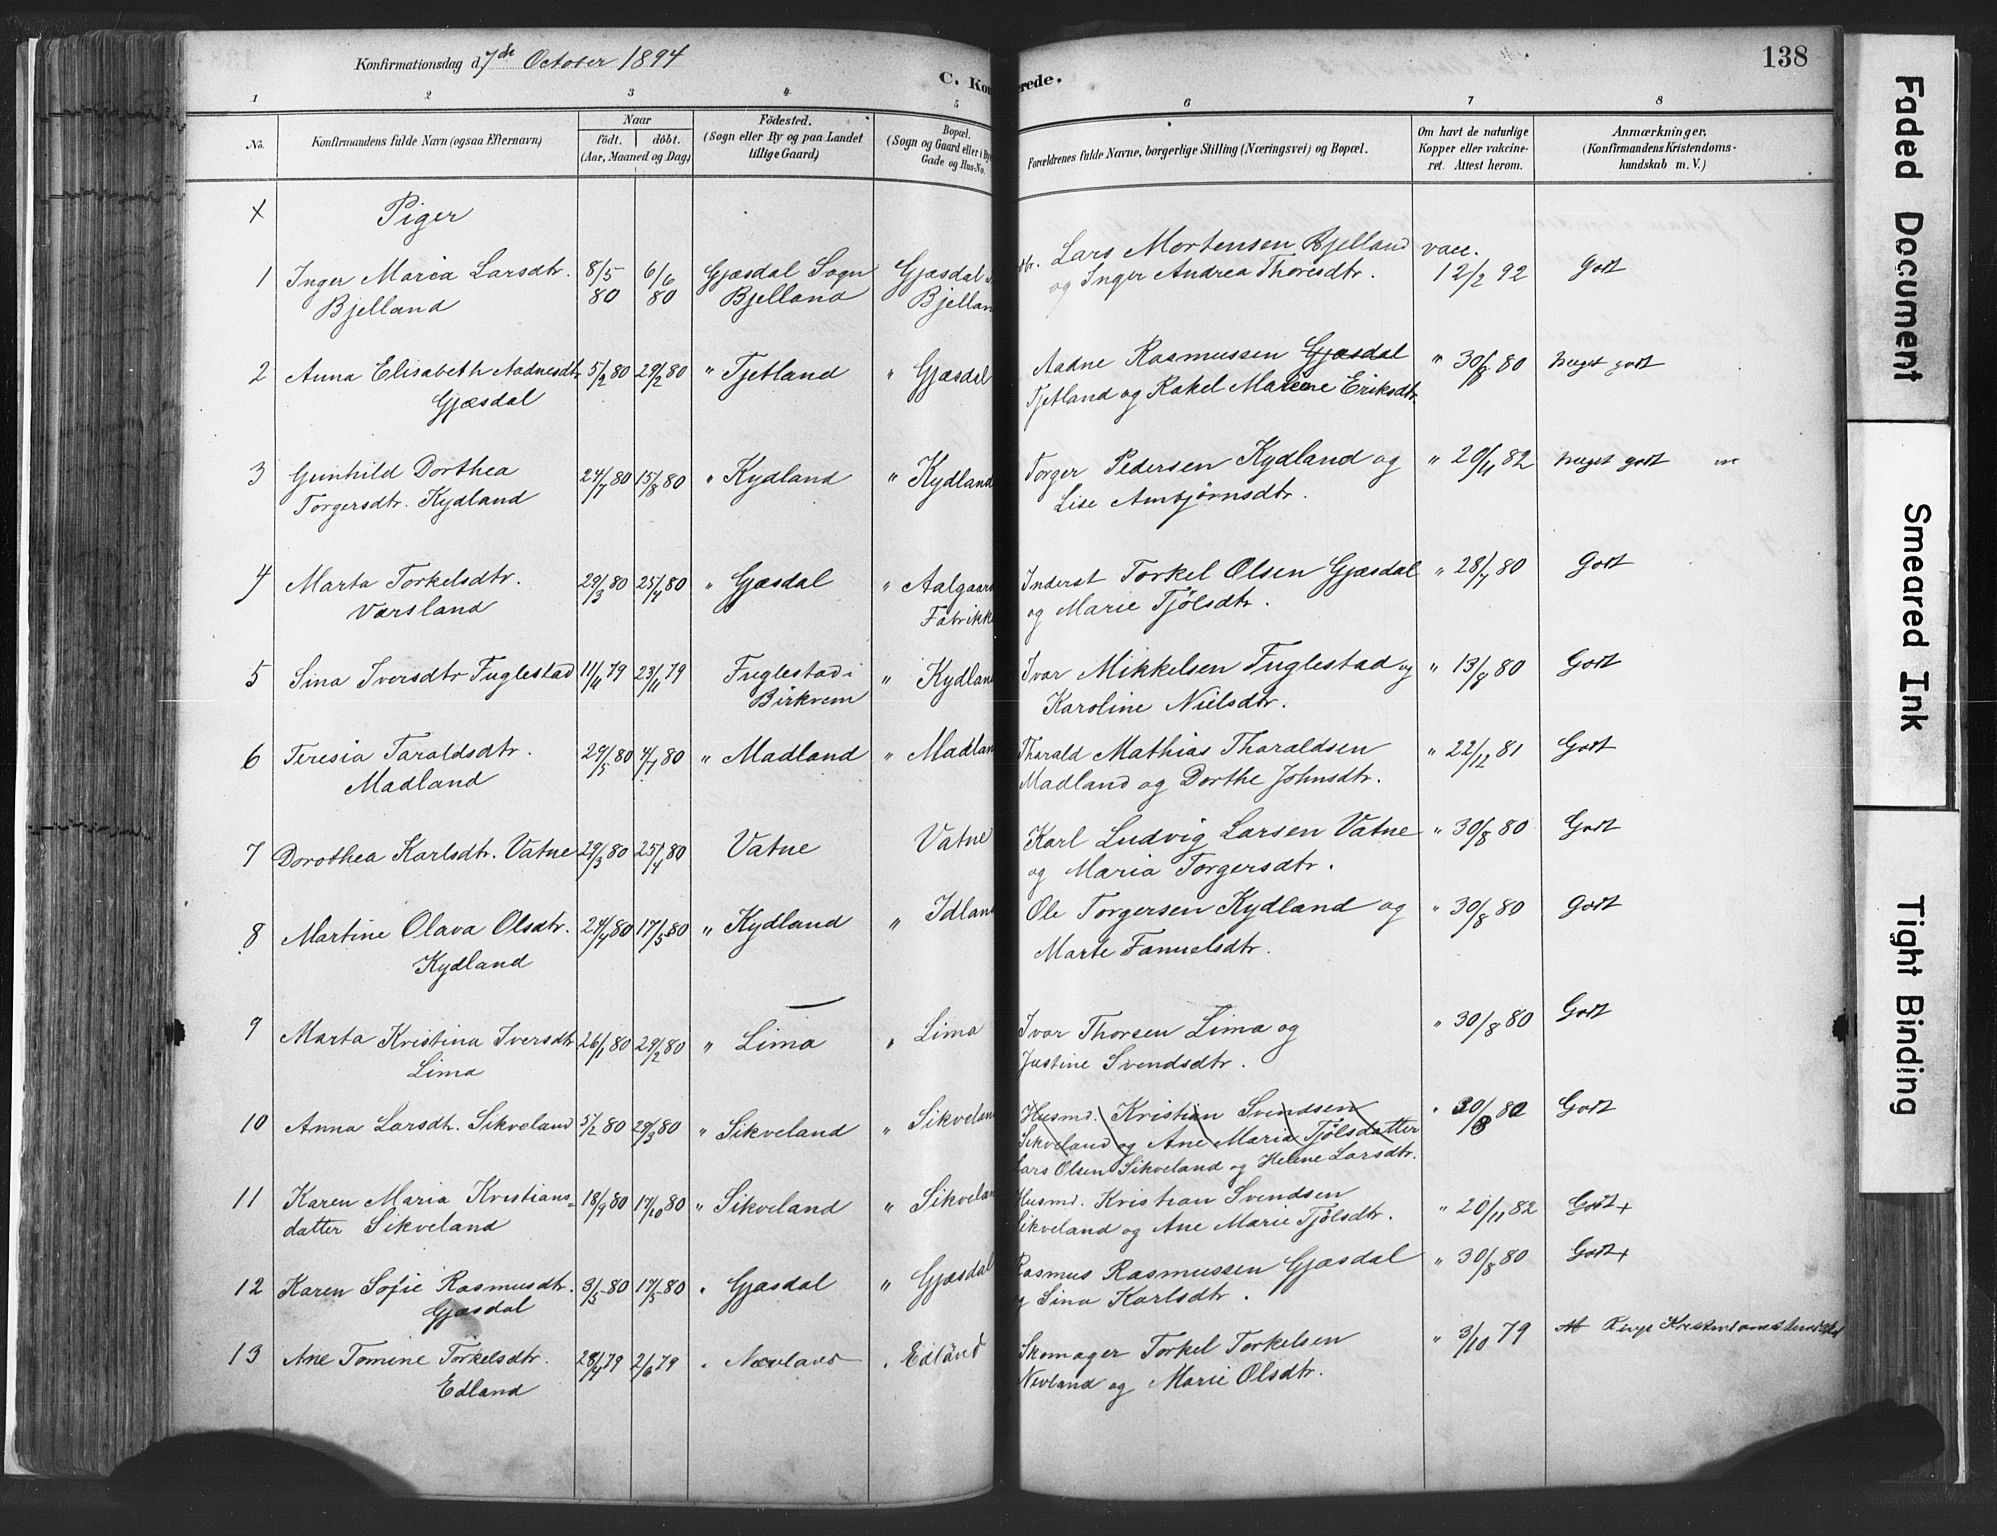 Konfirmationsdag d. 7de October 1894
138
C. Kon
erede.
1 2 3 4 5 6 7 8
No.
Konfirmandens fulde Navn (ogsaa Efternavn)
Naar
født. døbt.
(Aar, Maaned og Dag)
Födested.
(Sogn eller By og paa Landet
tillige Gaard)
Bopæl.
(Sogn og Gaard eller i By
Gade og Hus-No.
Forældrenes fulde Navne, borgerlige Stilling (Næringsvei) og Bopæl.
Om havt de naturlige
Kopper eller vakcine-
ret. Attest herom.
Anmærkninger,
(Konfirmandens Kristendoms-
kundskab m. V.)
X Piger
1 Inger Maria Larsdtr. 8/5 6/6 Gjæsdal Sogn Gjæsdal Lars Mortensen Bjelland vacc.
Bjelland 80 80 Bjelland Bjellan og Inger Andrea Thoresdtr. 12/2 92 Godt
2 Anna Elisabeth Aadnesdtr 5/2 80 29/2 80 " Tjetland " Gjæsdal Aadne Rasmussen Gjæsdal " 30/8 80 Meget godt
Gjæsdal Tjetland og Rakel Marene Eriksdtr.
3 Gunhild Dorthea 24/7 80 15/8 80 " Kydland " Kydland Torger Pedersen Kydland og " 20/11 82 Meget godt
Torgersdtr. Kydland Lise Ambjørnsdtr.
4 Marta Torkelsdtr. 29/3 80 25/4 80 " Gjæsdal " Aalgaard Inderst Torkel Olsen Gjæsdal " 28/7 80 Godt
Varsland Fabrikke og Marie Tjølsdtr.
5 Sina Iversdtr Fuglestad 11/4 79 23/11 79 Fuglestad i " Kydlan Ivar Mikkelsen Fuglestad og " 13/8 80 Godt
Birkrem Karoline Nielsdtr.
6 Teresia Taraldsdtr. 29/5 80 4/7 80 " Madland " Madlan Tharald Mathias Tharaldsen " 22/12 81 Godt
Madland Madland og Dorthe Johnsdtr.
7 Dorothea Karlsdtr. Vatne 29/3 80 25/4 80 Vatne Vatne Karl Ludvig Larsen Vatne " 30/8 80 Godt
og Maria Torgersdtr.
8 Martine Olava Olsdtr. 24/4 80 17/5 80 " Kydland " Idlan Ole Torgersen Kydland og " 30/8 80 Godt
Kydland Marte Famuelsdtr.
9 Marta Kristina Iversdtr 26/1 80 29/2 80 " Lima " Lima Ivar Thorsen Lima og " 30/8 80 Godt
Lima Justine Svendsdtr.
10 Anna Larsdtr. Sikveland 5/2 80 29/3 80 " Sikveland " Sikvelan Husmd. Kristian Svendsen " 30/8 80 Godt
Sikveland og Ane Maria Tjølsdatter
Lars Olsen Sikveland og Helene Larsdtr.
11 Karen Maria Kristians- 18/9 80 17/10 80 " Sikveland " Sikvelan Husmd. Kristian Svendsen " 20/11 82 Godt +
datter Sikveland Sikveland og Ane Marie Tjølsdtr.
12 Karen Sofie Rasmusdtr. 3/5 80 17/5 80 " Gjæsdal " Gjæsdal Rasmus Rasmussen Gjæsdal " 30/8 80 Godt +
Gjæsdal og Sina Karlsdtr.
13 Ane Tomine Torkelsdtr. 28/4 79 2/6 79 " Nævland " Edland Skomager Torkel Torkelsen " 3/10 79
Edland Nevland og Marie Olsdtr.
Faded Document
Smeared Ink
Tight Binding